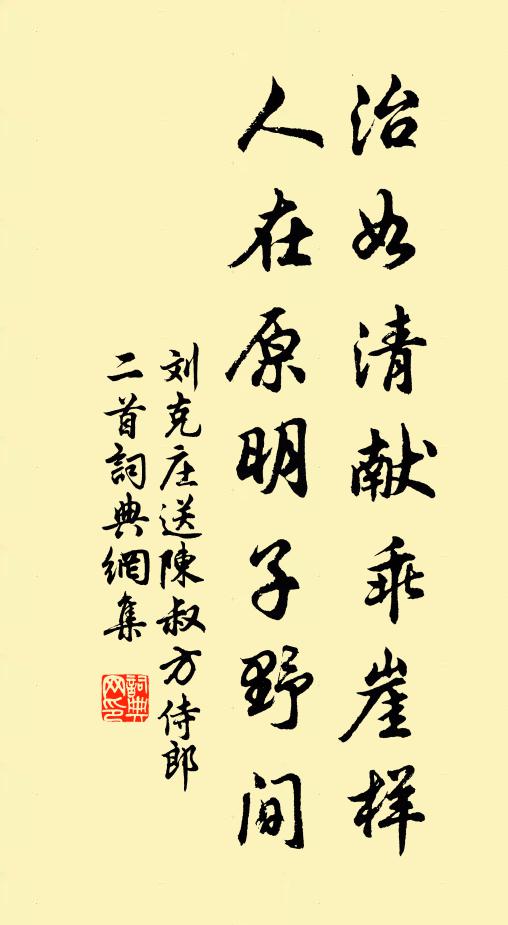 治如清献乖崖样
人在原明子野间
刘克庄送陳叔方侍郎
二首詞典網集
詞典网印